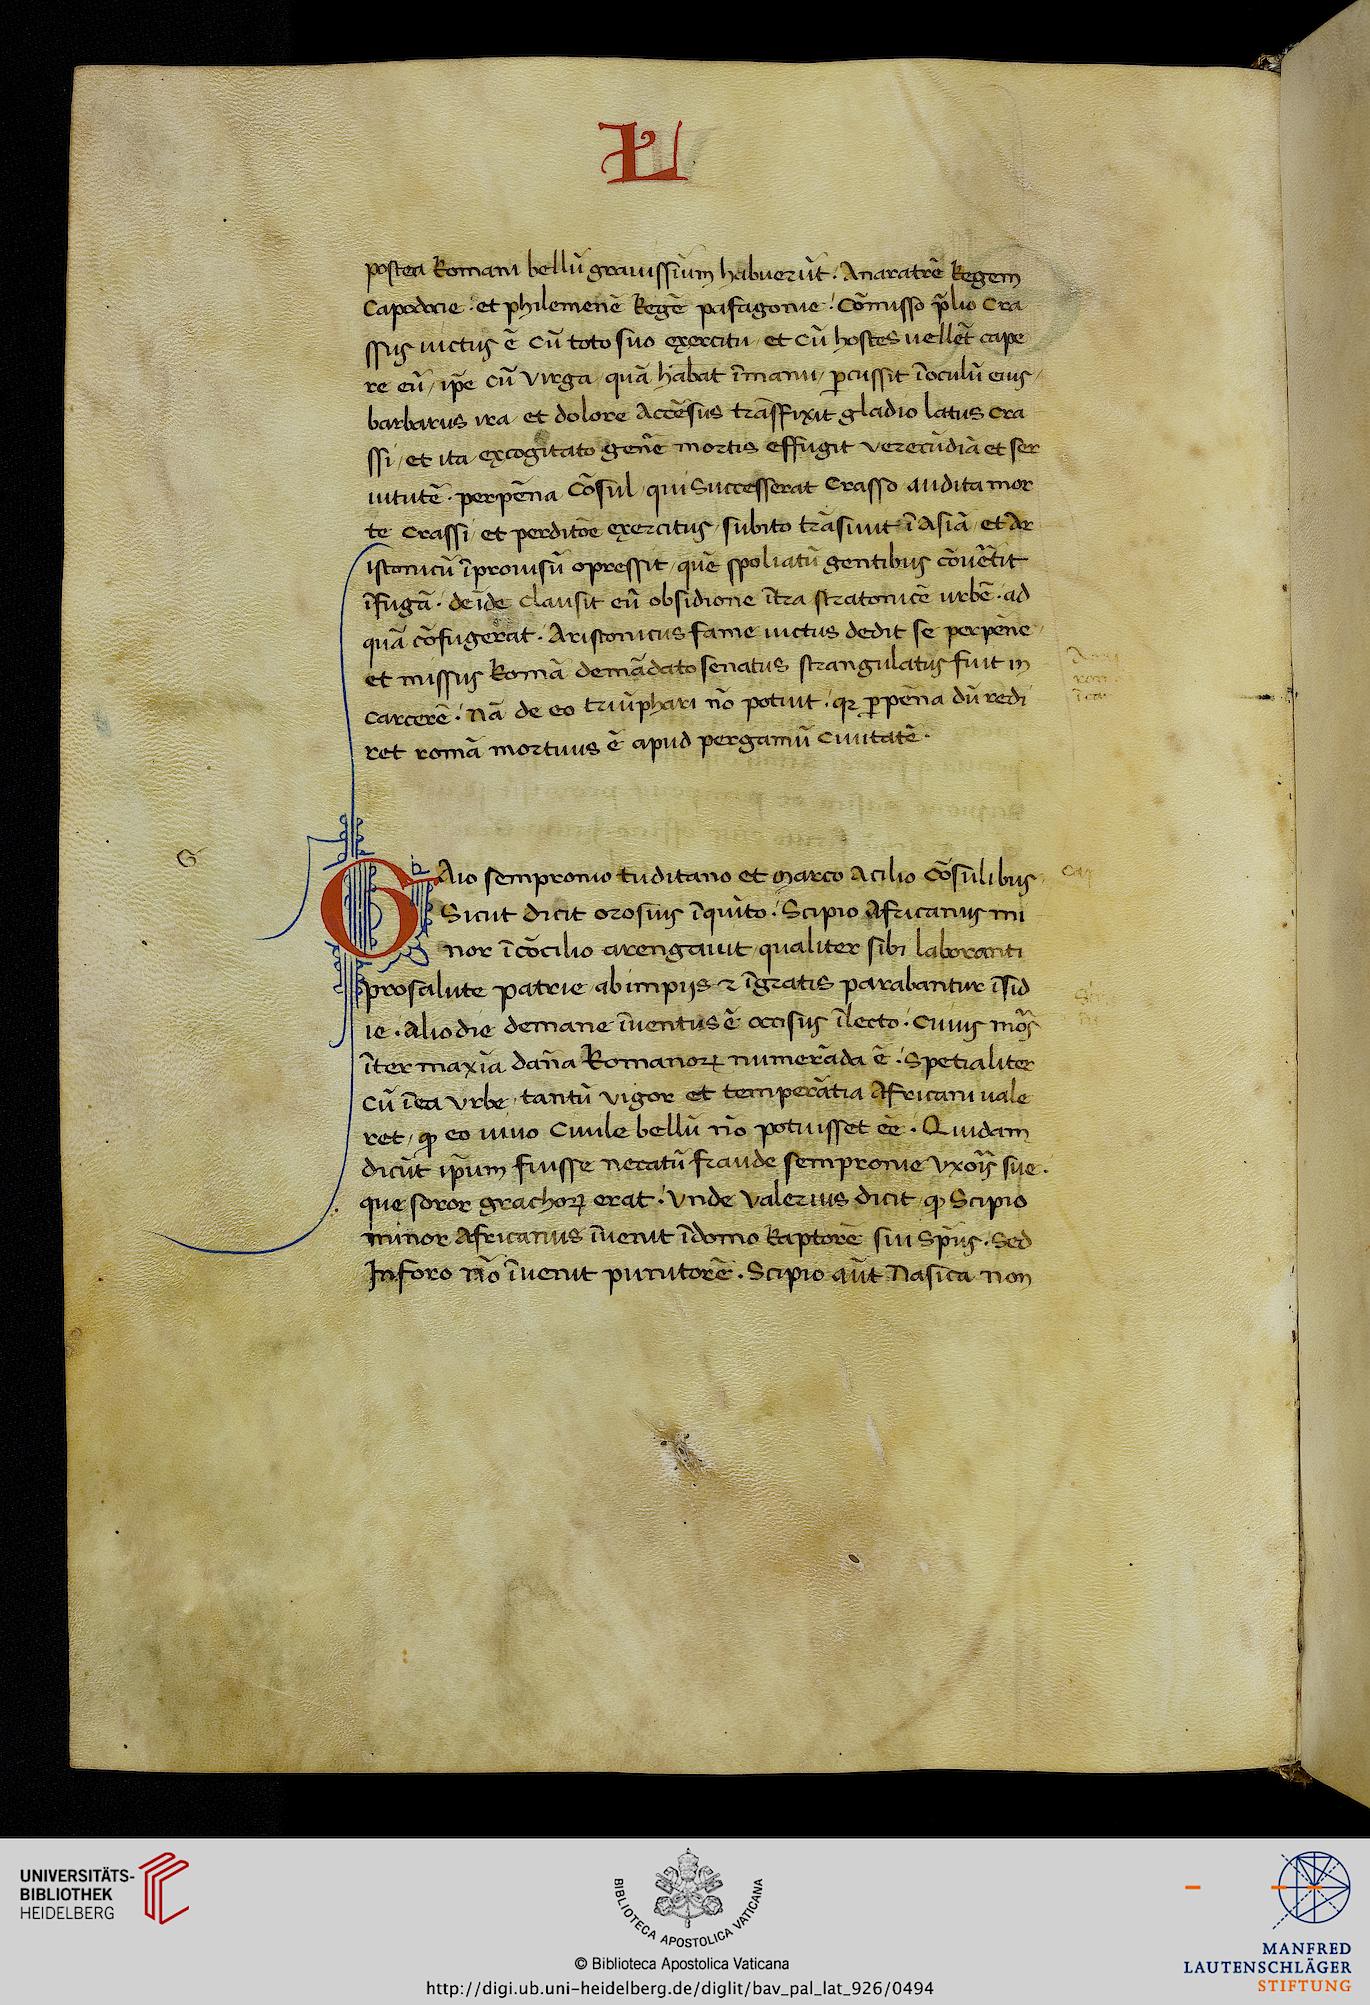 L
postea Romani bellū grauissium habuerūt. Anaratrē Regem
Capodocie. et philemenē Regē pafagonie. Cōmisso p̄lio Cra
ssus uictus ē cū toto suo exercitu / et cū hostes uellēt cape
re eū / ip̄e cū virga / quā habat īmanu / ꝑcussit īoculū eius /
barbarus ira / et dolore accēsus trāsfixit gladio latus cra
ssi / et ita excogitato gen̄e mortis effugit verecūdiā et ser
uitutē. perpēna Cōsul / qui Successerat Crasso audita mor
te Crassi / et perditōe exercitus / subito trāsiuit ī Asiā / et Ar
istonicū īprouisū opressit / quē spoliatū gentibus cōuētit
īfugā. deīde clausit eū obsidione ītra stratonicē urbē. ad
quā cōfugerat. Aristonicus fame uictus dedit se perpēne /
et missus Romā demādato senatus strangulatus fuit in
carcerē. Nā de eo triūphari nō potuit. qꝛ ꝑpēna dū redi
ret romā mortuus ē apud pergamū Ciuitatē.
G
GAio sempronio tuditano et Marco Acilio Cōsulibus
Sicut dicit orosius īquīto. Scipio Africanus mi
nor īcōcilio arengauit / qualiter sibi laboranti
prosalute patrie / abimpijs ⁊ īgratis parabantur īsid
ie. Aliodie demane īuentus ē occisus īlecto. Cuius mōs
īter maxīa dāna Romanoꝝ numerāda ē. Spetialiter
cū īea vrbe / tantū vigor et temperātia Africani uale
ret / ꝙ eo uiuo Ciuile bellū nō potuisset eē. Quidam
dicūt ip̄um fuisse necatū fraude sempronie vxoīs sue.
que soror grachoꝝ erat. Vnde Valerius dicit / ꝙ Scipio
minor Africanus īuenit īdomo Raptorē sui Sp̄us. Sed
Inforo nō īuenit punitorē. Scipio aūt Nasica non
UNIVERSITÄTS-
BIBLIOTHEK
HEIDELBERG
BIBLIOTECA APOSTOLICA VATICANA
© Biblioteca Apostolica Vaticana
http://digi.ub.uni-heidelberg.de/diglit/bav_pal_lat_926/0494
MANFRED
LAUTENSCHLÄGER
STIFTUNG